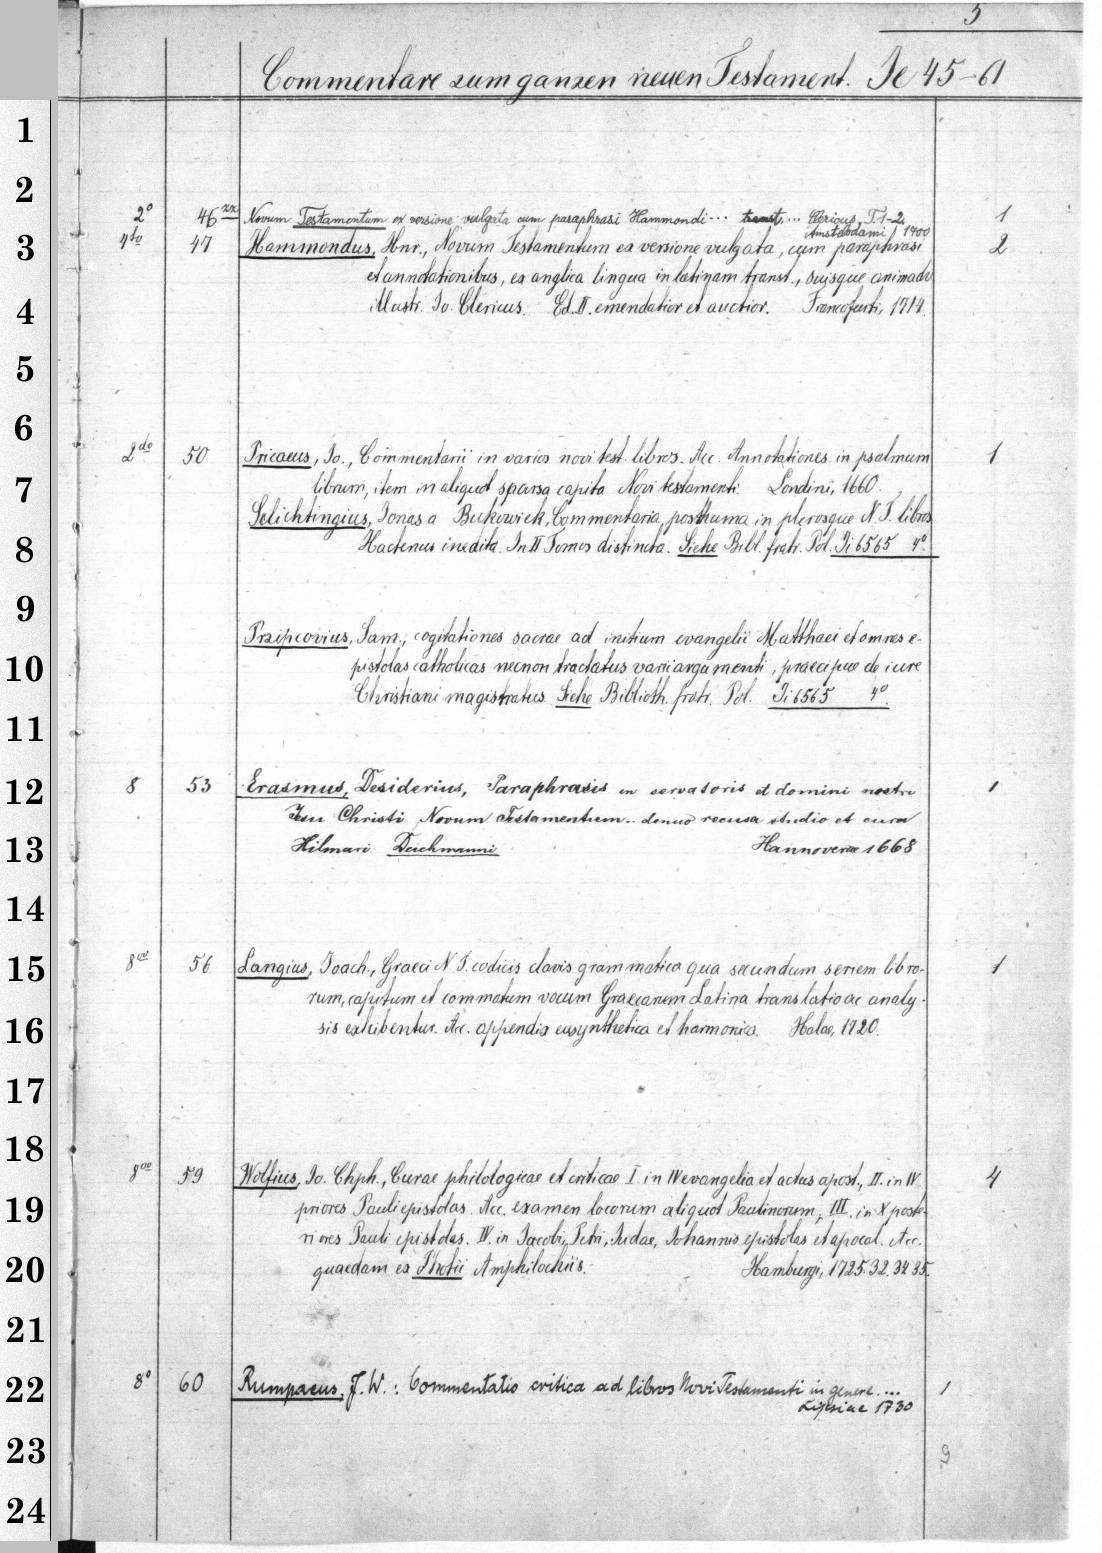 5
Commentare zum ganzen neuen Testament. Je 45-61
1
2
2° 46xx Novum Testamentum ex versione vulgata cum paraphrasi Hammondi ... transt. ... Clericus, T. 1-2. 1
Amstelodami 1700
3 4to 47 Hammondus, Hnr., Novum Testamentum ex versione vulgata, cum paraphrasi 2
et annotationibus, ex anglica lingua in latinam transt., suisque animadv
4 illustr. Jo. Clericus. Ed. II. emendatior et auctior. Francofurti, 1714.
5
6
2do 50 Pricaeus, Jo., Commentarii in varios novi test. libros. Acc. Annotationes in psalmum 1
7 librum, item in aliquot sparsa capita Novi testamenti. Londini, 1660.
Selichtingius, Jonas a Bukowiek, Commentaria posthuma in plerosque N. T. libros
8 Hactenus inedita. In II Tomos distincta. Siehe Bibl. fratr. Pol. Ji 6565 4°.
9
Przipcovius, Sam., cogitationes sacrae ad initium evangelii Matthaei et omnes e-
10 pistolas catholicas necnon tractatus varii argumenti, praecipue de iure
Christiani magistratus. Siehe Biblioth. fratr. Pol. Ji 6565 4°.
11
12 8 53 Erasmus, Desiderius, Paraphrasis in servatoris et domini nostri 1
Jesu Christi Novum Testamentum .. denuo recusa studio et cura
13 Hilmari Deichmanni Hannoverae 1668
14
15 8vo 56 Langius, Joach., Graeci N. T. codicis clavis grammatica qua secundum seriem libro- 1
rum, capitum et commatum vocum Graecarum Latina translatio ac analy-
16 sis exhibentur. Acc. appendix eusynthetica et harmonica. Halae, 1720.
17
18
8vo 59 Wolfius, Jo. Chph., Curae philologicae et criticae I. in IV evangelia et actus apost., II. in IV 4
19 priores Pauli epistolas. Acc. examen locorum aliquot Paulinorum, III. in X poste-
riores Pauli epistolas. IV. in Jacobi, Petri, Judae, Johannis epistolas et apocal. Acc.
20 quaedam ex Photii Amphilochiis. Hamburgi, 1725.32.34.35.
21
22 8° 60 Rumpaeus, J. W.: Commentatio critica ad libros Novi Testamenti in genere.... 1
Lipsiae 1730
23 9
24